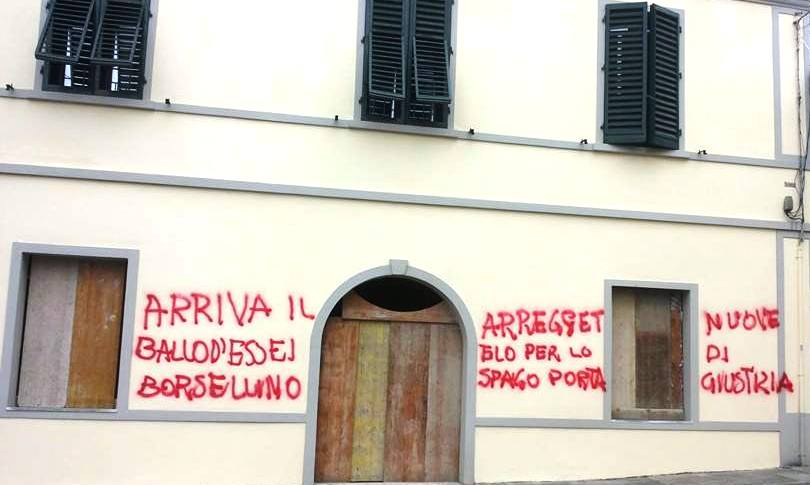 ARRIVA IL
BALLOD'ESSEI
BORSELLINO
ARREGGET
ELO PER LO
SPAGO PORTA
NUOVE
DI
GIUSTIZIA